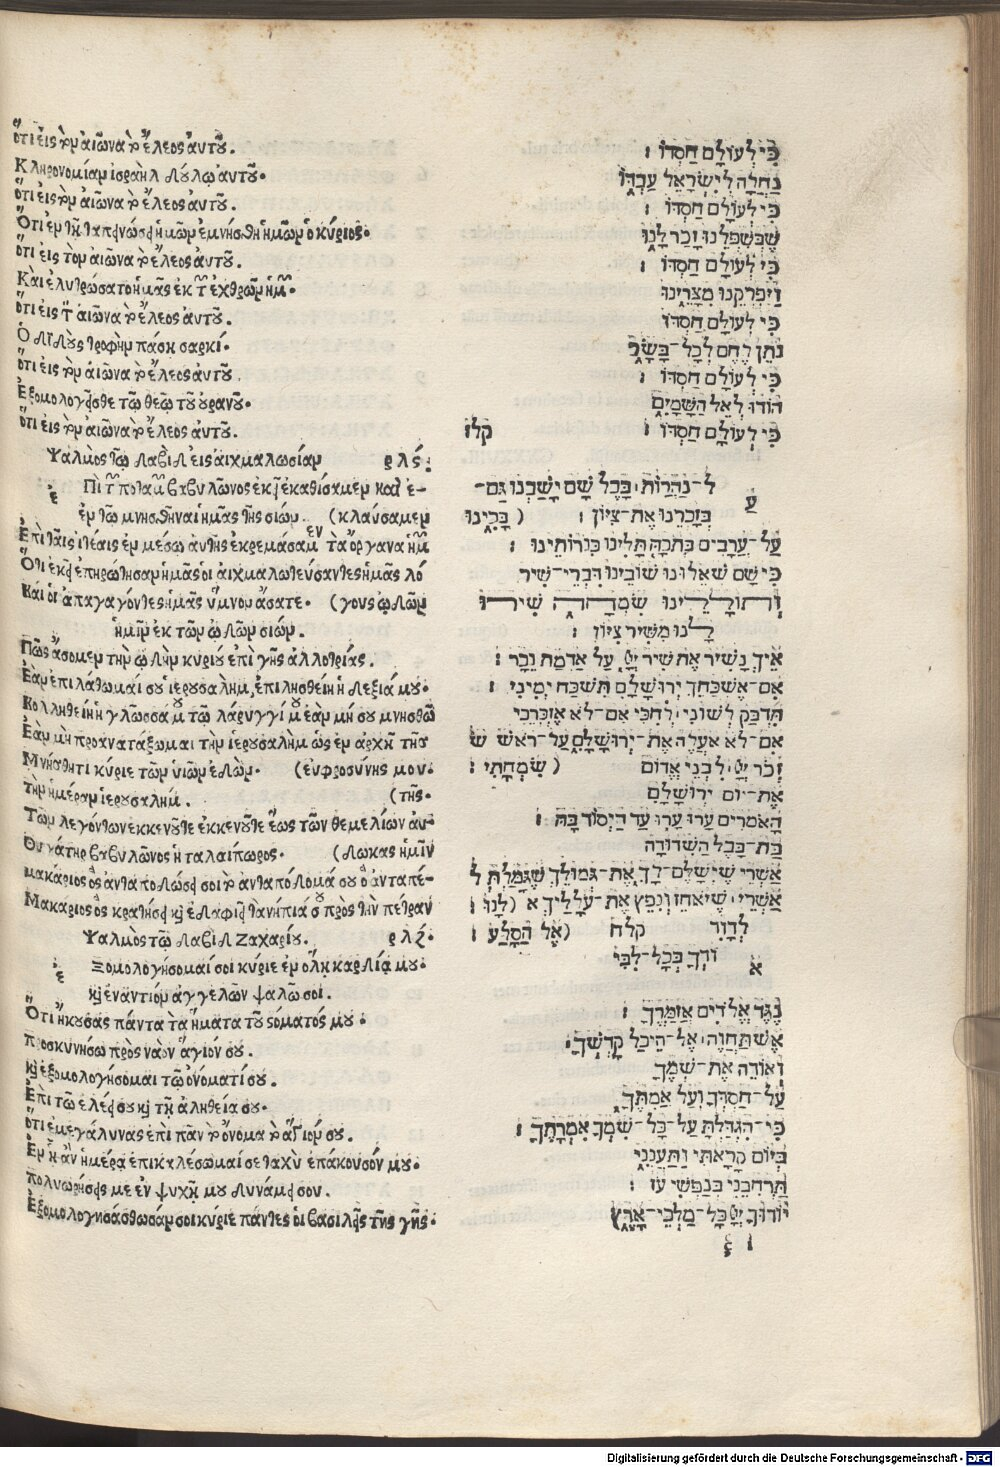 ὅτι εἰς τὸν αἰῶνα τὸ ἔλεος αὐτοῦ.
Κληρονομίαν ισραὴλ δούλῳ αὐτοῦ.
ὅτι εἰς τὸν αἰῶνα τὸ ἔλεος αὐτοῦ.
Ὅτι ἐν τῇ ταπεινώσει ἡμῶν ἐμνήσθη ἡμῶν ο κύριος.
ὅτι εις τον αἰῶνα τὸ ἔλεος αὐτοῦ.
Καὶ ἐλυτρώσατο ἡμᾶς ἐκ τῶν ἐχθρῶν ἡμῶν.
ὅτι εἰς τὸν αἰῶνα τὸ ἔλεος αὐτοῦ.
Ὁ διδοὺς τροφὴν παση σαρκί.
ὅτι εἰς τὸν αἰῶνα τὸ ἔλεος αὐτοῦ.
Ἐξομολογεῖσθε τῶ θεῶ τοῦ ουρανοῦ.
ὅτι εἰς τὸν αἰῶνα τὸ ἔλεος αὐτοῦ.
Ψαλμὸς τῶ δαβὶδ εἰς αἰχμαλωσίαν ρλϛ:
ἐ Πὶ τῶν ποταμῶν βαβυλῶνος ἐκεῖ ἐκαθίσαμεν καὶ ἐ-
ἐν τῶ μνησθῆναι ἡμᾶς τῆς σιών. (κλαύσαμεν
Ἐπὶ ταῖς ἰτέαις ἐν μέσω αὐτῆς ἐκρεμάσαμεν τὰ ὄργανα ἡμῶν
Ὅτι ἐκεῖ ἐπηρώτησαν ἡμᾶς οἱ αἰχμαλωτεύσαντες ἡμᾶς λό
Καὶ οἱ ἀπαγαγόντες ἡμᾶς ὕμνον ἄσατε. (γους ᾠδῶν
ἡμῖν ἐκ τῶν ᾠδῶν σιών.
Πῶς ἄσομεν τὴν ᾠδὴν κυρίου ἐπὶ γῆς ἀλλοτρίας.
Ἐὰν ἐπιλάθωμαί σου ἱερουσαλημ, ἐπιλησθείη ἡ δεξιά μου.
Κολληθείη ἡ γλῶσσα μου τῶ λάρυγγί μου ἐὰν μή σου μνησθῶ
Ἐὰν μὴ προανατάξωμαι τὴν ἱερυσαλὴμ ὡς ἐν ἀρχῇ τῆσ
Μνήσθητι κύριε τῶν υἱῶν ἐδώμ. (εὐφροσύνης μου.
τὴν ἡμέραν ἱερουσαλήμ. (τῆς.
Τῶν λεγόντων ἐκκενοῦτε ἐκκενοῦτε ἕως τῶν θεμελίων ἀυ-
Θυγάτηρ βαβυλῶνος ἡ ταλαίπωρος. (δωκας ἡμῖν
μακάριος ὃς ἀνταποδώσει σοι τὸ ἀνταπόδομά σου ὃ ἀνταπέ-
Μακαριος ὃς κρατήσει καὶ ἐδαφιεῖ τα νήπιά σου πρὸς τὴν πέτραν
Ψαλμὸς τῶ δαβὶδ Ζαχαρίου. ρλζ.
ἐ Ξομολογήσομαί σοι κύριε ἐν ὅλῃ καρδίᾳ μου.
καὶ ἐναντίον ἀγγελῶν ψαλῶ σοι.
Ὅτι ἤκουσας πάντα τὰ ῥήματα τοῦ σόματός μου.
προσκυνήσω πρὸς ναὸν ἅγιόν σου.
καὶ ἐξομολογήσομαι τῶ ὀνοματί σου.
Ἐπὶ τῶ ελέει σου καὶ τῇ ἀληθεία σου.
ὅτι ἐμεγάλυνας ἐπὶ πᾶν τὸ ὄνομα τὸ ἅγιόν σου.
Ἐν ᾗ ἂν ἡμέρα ἐπικαλέσωμαί σε ταχὺ ἐπάκουσόν μου.
πολυωρήσεις με ἐν ψυχῇ μου δυνάμει σου.
Ἐξομολογησάσθωσάν σοι κύριε πάντες οἱ βασιλεῖς τῆς γῆς.
כִּי לְעוֹלָם חַסְדּוֹ :
נַחֲלָה לְיִשְׂרָאֵל עַבְדּוֹ
כִּי לְעוֹלָם חַסְדּוֹ :
שֶׁבְּשִׁפְלֵנוּ זָכַר לָנוּ
כִּי לְעוֹלָם חַסְדּוֹ :
וַיִּפְרְקֵנוּ מִצָּרֵינוּ
כִּי לְעוֹלָם חַסְדּוֹ
נֹתֵן לֶחֶם לְכָל־בָּשָׂר
כִּי לְעוֹלָם חַסְדּוֹ :
הוֹדוּ לְאֵל הַשָּׁמָיִם
כִּי לְעוֹלָם חַסְדּוֹ : קלז
ע ל־נַהֲרוֹת בָּבֶל שָׁם יָשַׁבְנוּ גַּם־
בְּזָכְרֵנוּ אֶת־צִיּוֹן : (בָּכִינוּ
עַל־עֲרָבִים בְּתֹכָהּ תָּלִינוּ כִּנֹּרוֹתֵינוּ :
כִּי שָׁם שְׁאֵלוּנוּ שׁוֹבֵינוּ דִּבְרֵי־שִׁיר
וְתוֹלָלֵינוּ שִׂמְחָה שִׁירוּ
לָנוּ מִשִּׁיר צִיּוֹן :
אֵיךְ נָשִׁיר אֶת שִׁיר יְיָ עַל אַדְמַת נֵכָר :
אִם־אֶשְׁכָּחֵךְ יְרוּשָׁלִָם תִּשְׁכַּח יְמִינִי :
תִּדְבַּק לְשׁוֹנִי לְחִכִּי אִם־לֹא אֶזְכְּרֵכִי
אִם־לֹא אַעֲלֶה אֶת־יְרוּשָׁלִַם עַל־רֹאשׁ ש
זְכֹר יְיָ לִבְנֵי אֱדוֹם (שִׂמְחָתִי :
אֶת־יוֹם יְרוּשָׁלִָם
הָאֹמְרִים עָרוּ עָרוּ עַד הַיְסוֹד בָּהּ :
בַּת־בָּבֶל הַשְּׁדוּדָה
אַשְׁרֵי שֶׁיְשַׁלֶּם־לָךְ אֶת־גְּמוּלֵךְ שֶׁגָּמַלְתְּ ל
אַשְׁרֵי שֶׁיֹּאחֵז וְנִפֵּץ אֶת־עֹלָלַיִךְ א (לָנוּ :
לְדָוִד קלח (אֶל הַסָּלַע :
א וֹדְךָ בְכָל־לִבִּי
נֶגֶד אֱלֹדִים אֲזַמְּרֶךָּ :
אֶשְׁתַּחֲוֶה אֶל־הֵיכַל קָדְשְׁךָ
וְאוֹדֶה אֶת־שְׁמֶךָ
עַל־חַסְדְּךָ וְעַל אֲמִתֶּךָ
כִּי־הִגְדַּלְתָּ עַל־כָּל־שִׁמְךָ אִמְרָתֶךָ :
בְּיוֹם קָרָאתִי וַתַּעֲנֵנִי
תַּרְהִבֵנִי בְנַפְשִׁי עֹז :
יוֹדוּךָ יְיָ כָּל־מַלְכֵי־אָרֶץ
Digitalisierung gefördert durch die Deutsche Forschungsgemeinschaft - DFG